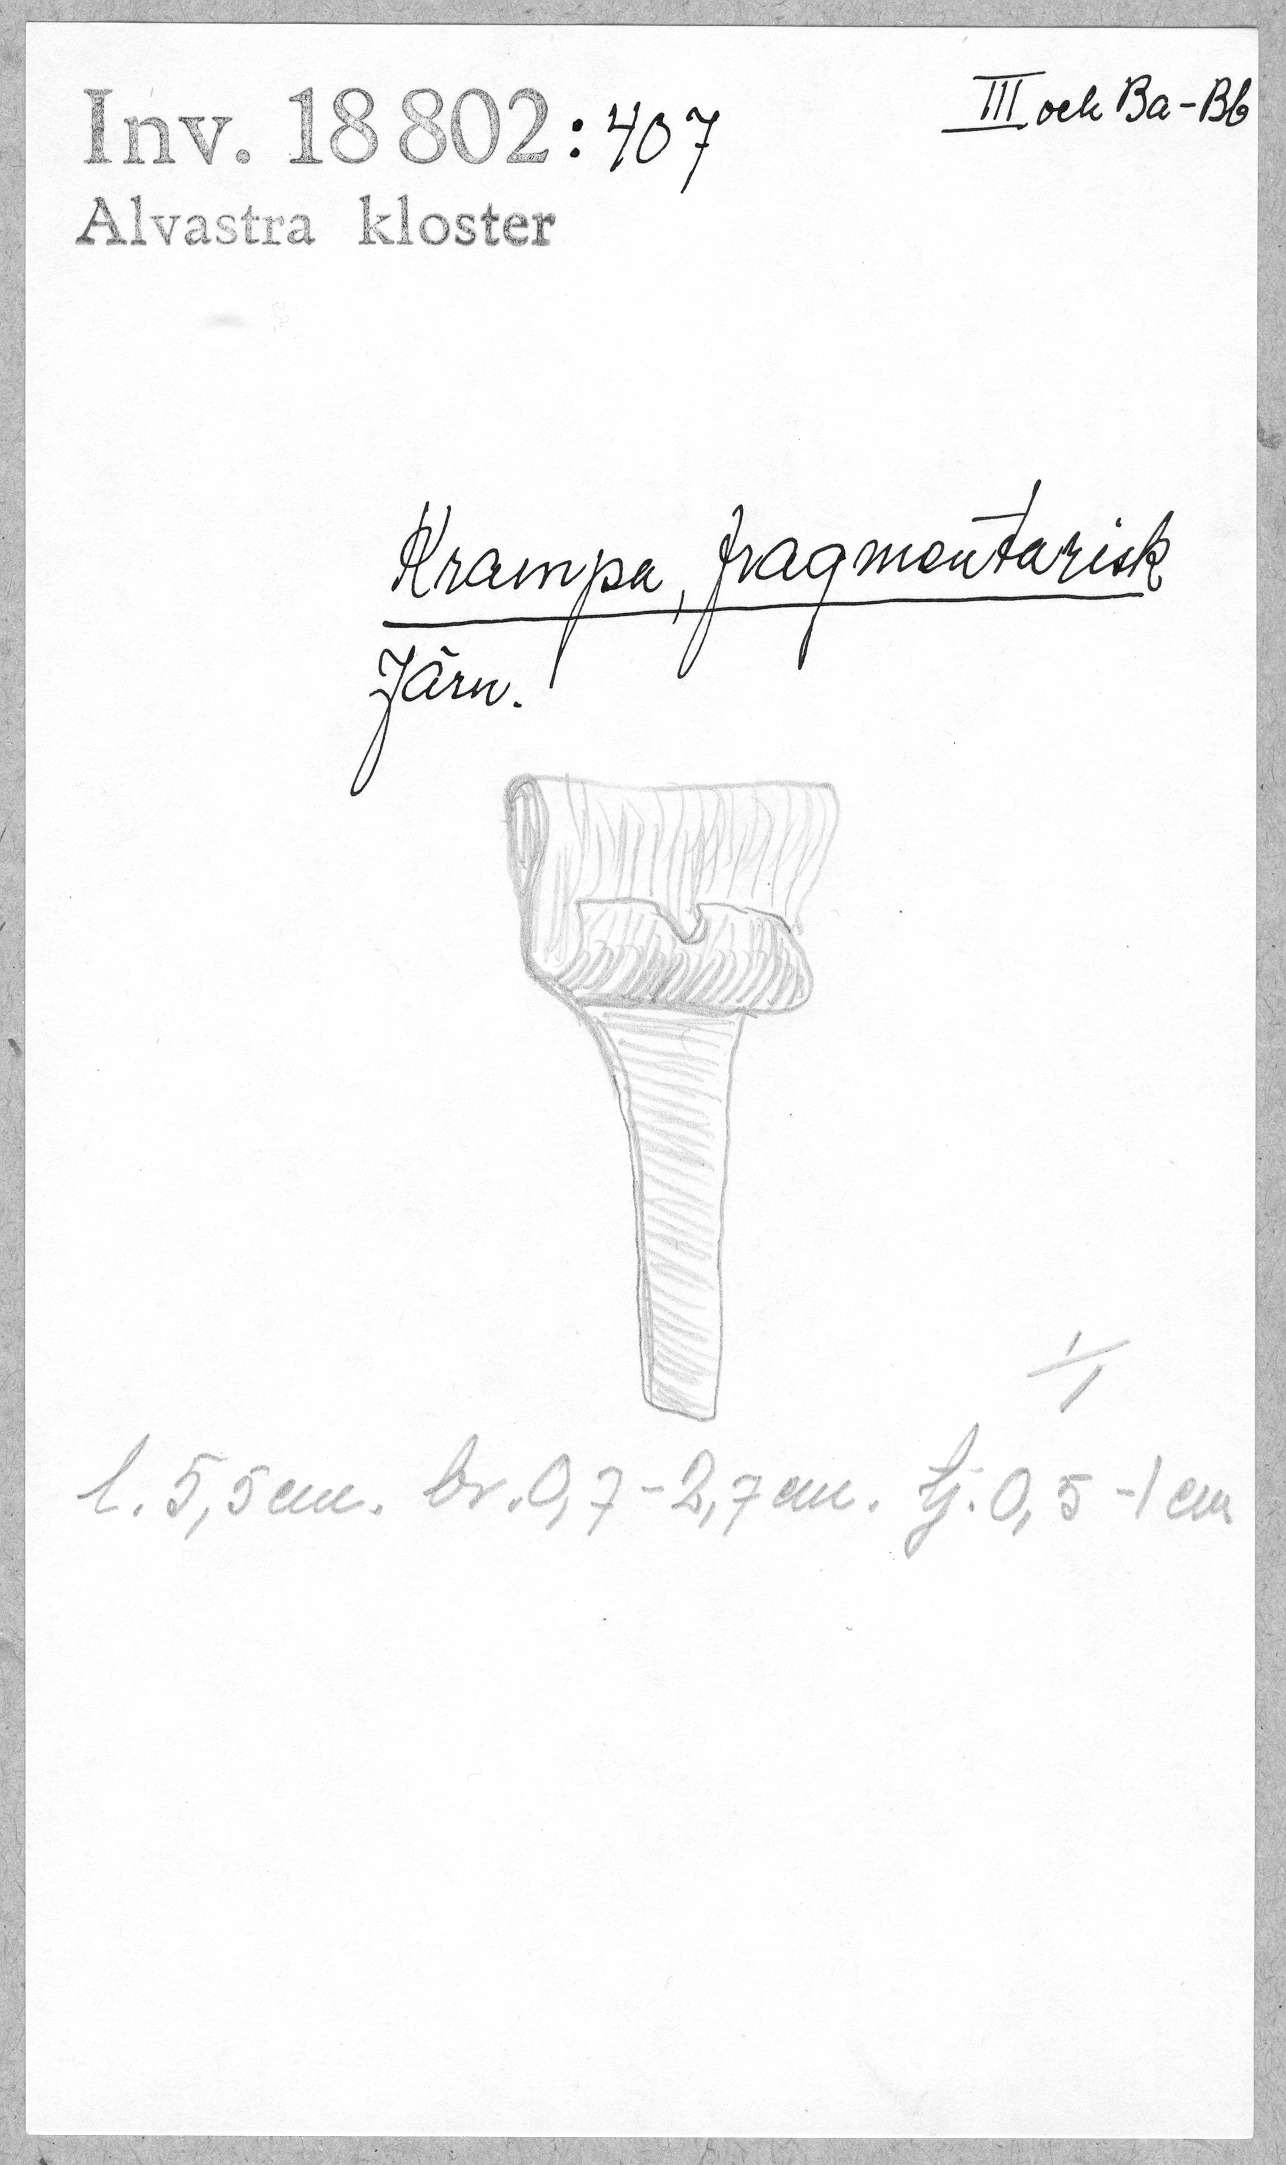 Inv. 18 802:407
III och Ba-Bb
Alvastra kloster
Krampa, fragmentarisk
Järn.
1/1
l. 5,5 cm. br. 0,7-2,7 cm. tj. 0,5-1 cm